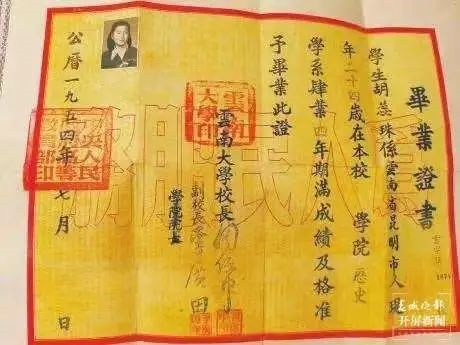 畢業證書
學生胡蕊珠係雲南省昆明市人現
年二十四歲在本校　學院歷史
學系肄業四年期滿成績及格准
予畢業此證
雲南大學校長
副校長
學院院長
雲南大學印
公曆一九五四年七月　日
人民
開屏新聞